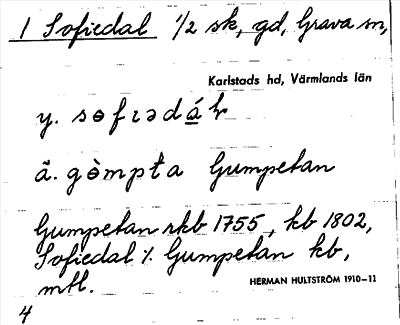 1 Sofiedal 1/2 sk, gd, Grava sn,
Karlstads hd, Värmlands län
y. səfɩədáɫ
ä. gə̀mpta Gumpetan
Gumpetan rkb 1755, kb 1802,
Sofiedal /. Gumpetan kb,
mtl.
HERMAN HULTSTRÖM 1910–11
4